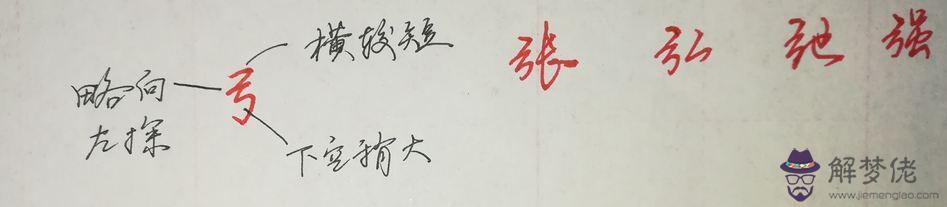 横较短
略向
左探
弓
下空稍大
张 弘 弛 强
解梦佬
www.jiemenglao.com